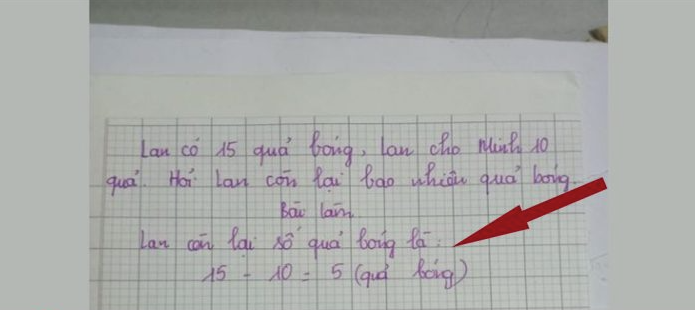 Lan có 15 quả bóng, Lan cho Minh 10
quả. Hỏi Lan còn lại bao nhiêu quả bóng.
Bài làm
Lan còn lại số quả bóng là:
15 - 10 = 5 (quả bóng)